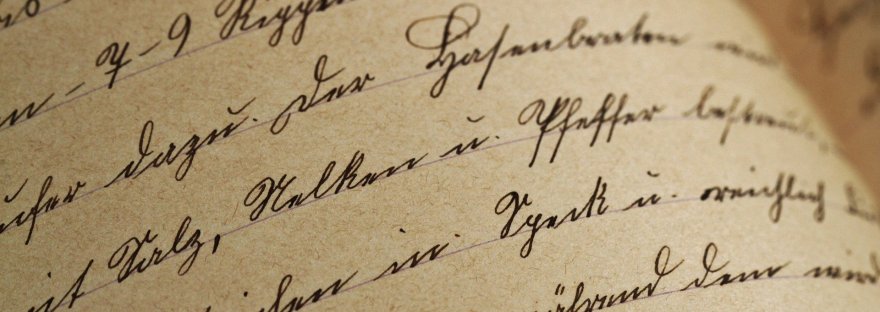 n - 7 - 9 Rippen
ufer dazu. Der Hasenbraten
mit Salz, Nelken u. Pfeffer bestreut,
in Speck u. reichlich
während dem wird